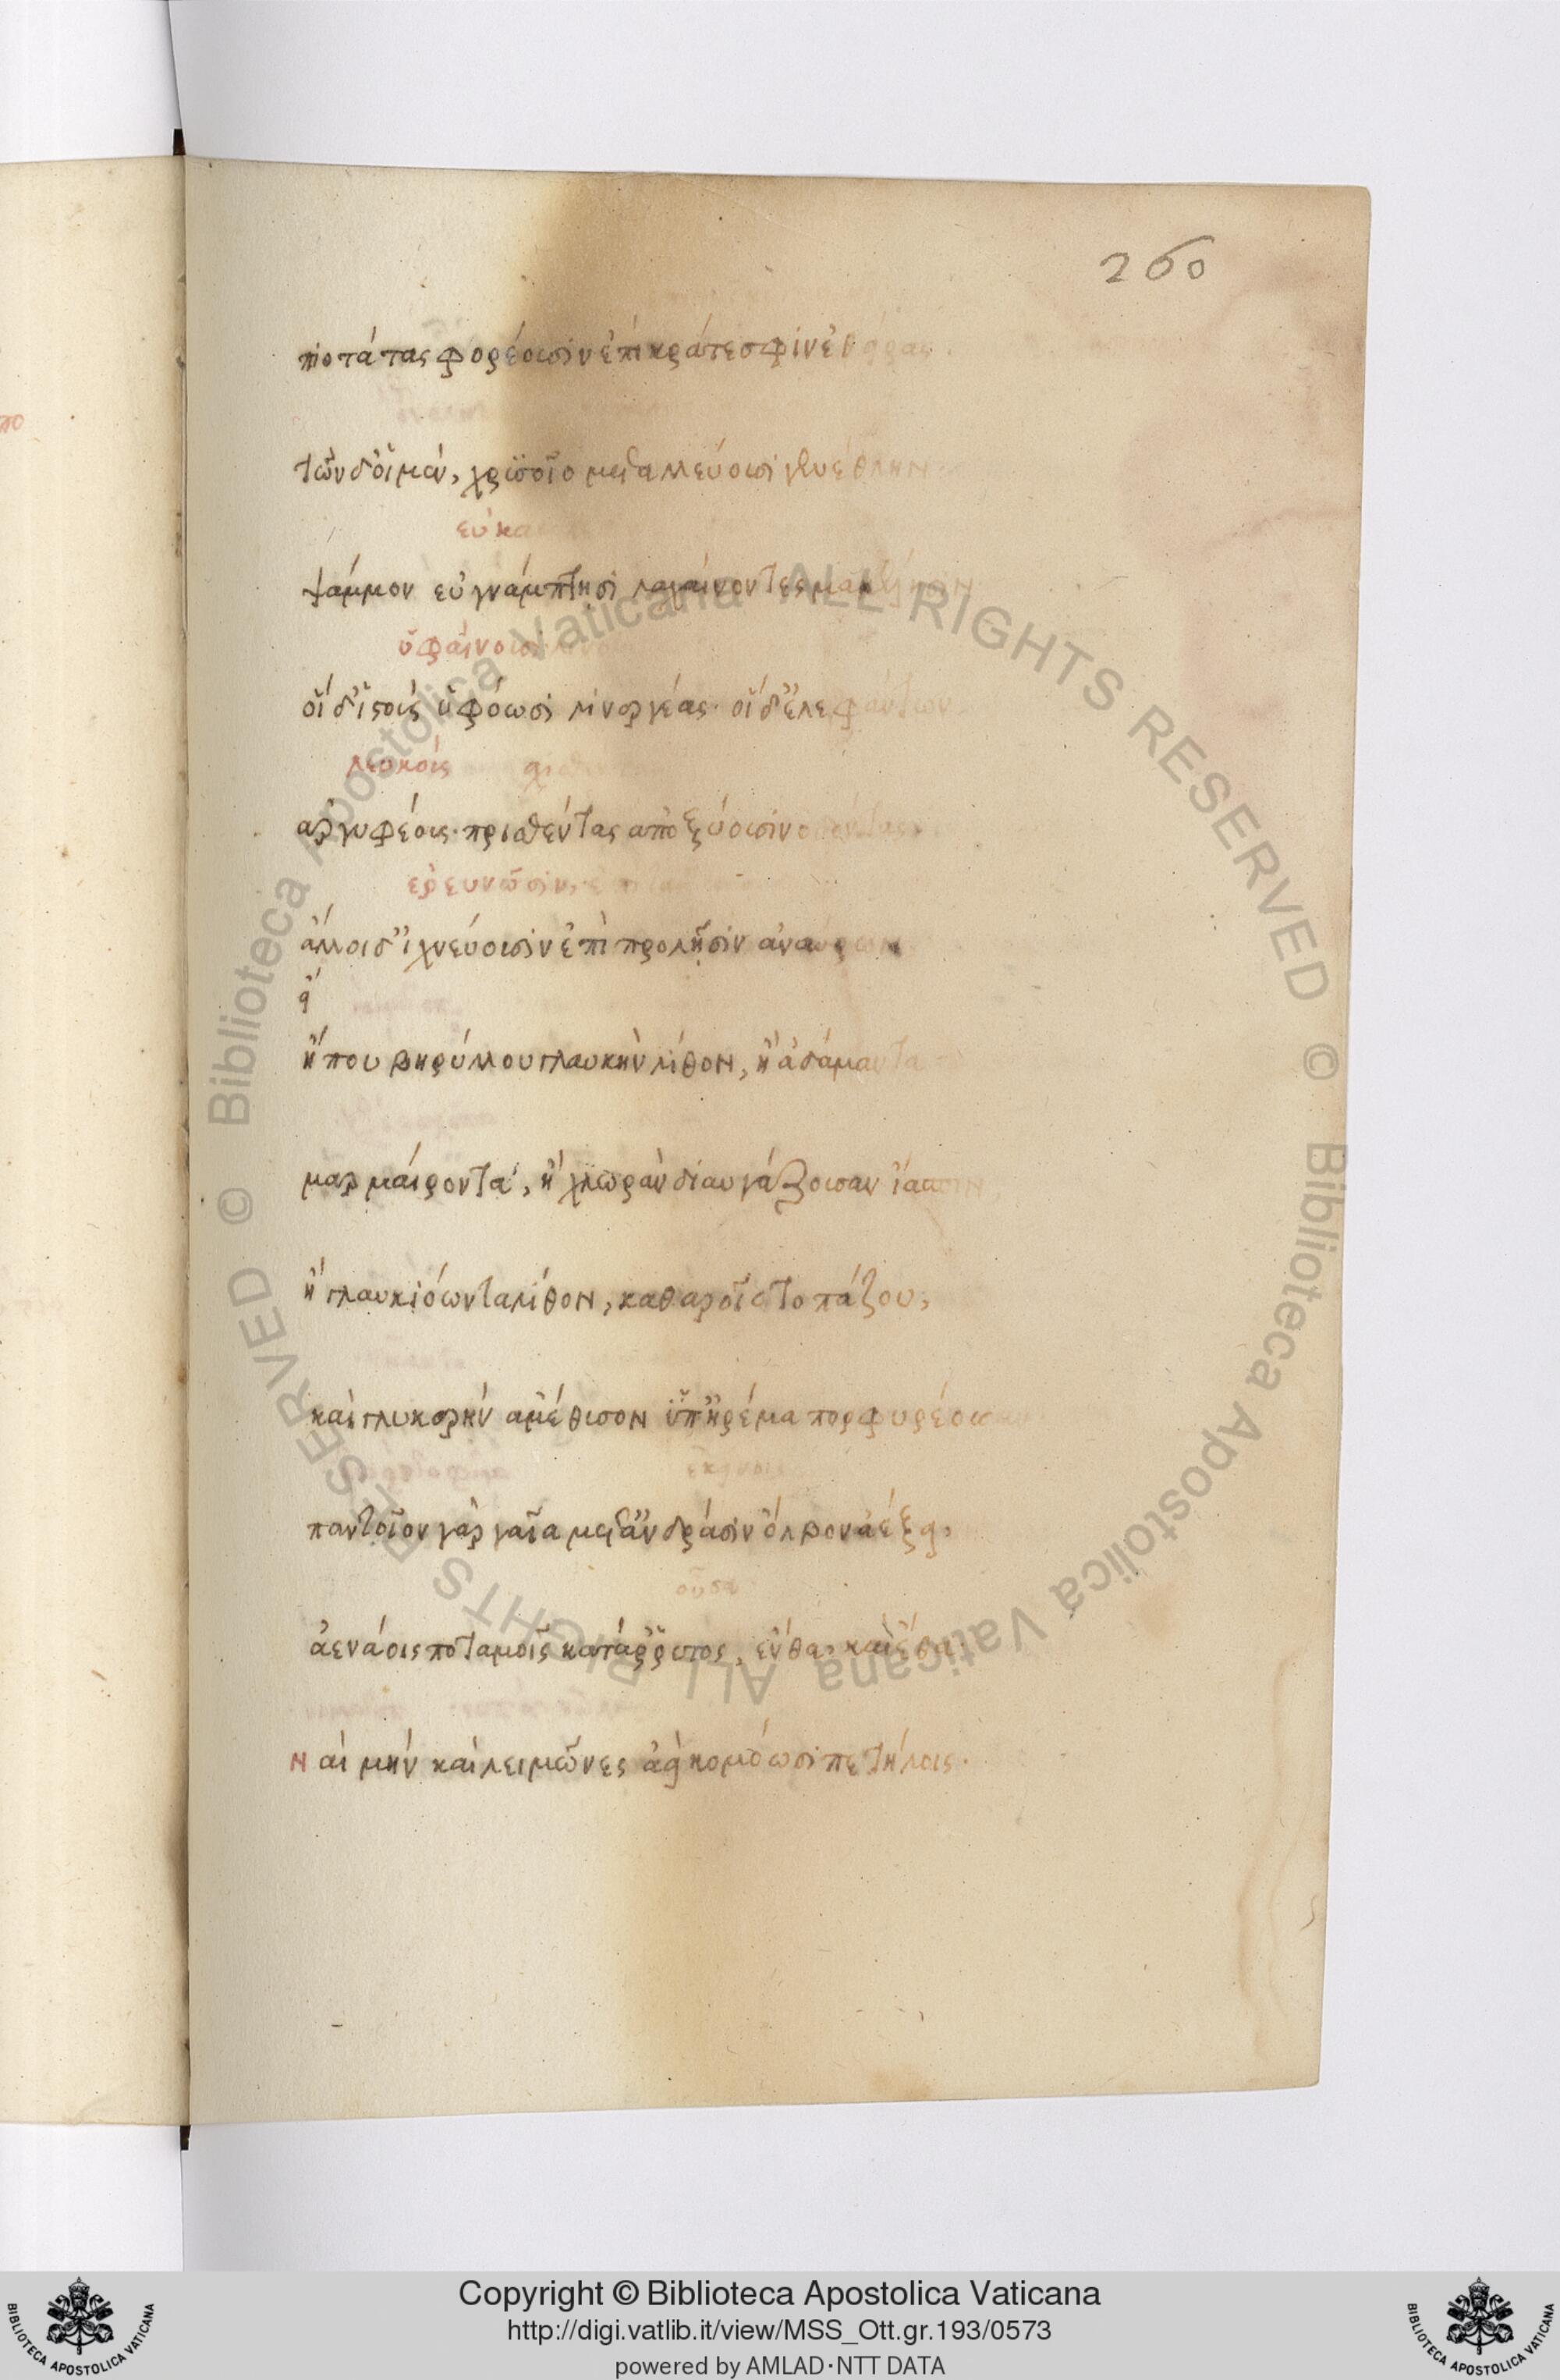 260
πιοτάτας φορέουσιν ἐπὶ κράτεσφιν ἐθείρας.
τῶν δ' οἱ μὲν, χρυσοῖο μεταλλεύουσι γενέθλην
ευκα
ψάμμον εὐγνάμπτῃσι λαχαίνοντες μακέλῃσιν
ὑφαίνουσι
οἵ δ' ἱστοὺς ὑφόωσι λινεργέας· οἵ δ' ἐλεφάντων
λευκοὺς
ἀργυφέους πρισθέντας ἀποξύουσιν ὀδόντας·
ἐρευνῶσιν
ἄλλοι δ' ἰχνεύουσιν ἐπὶ προλῇσιν ἀναύρων
ἤ που βηρύλλου γλαυκὴν λίθον, ἢ ἀδάμαντα
μαρμαίροντα, ἢ χλωρὰν διαυγάζουσαν ἴασπιν
ἢ γλαυκιόωντα λίθον, καθαροῖο τοπάζου,
καὶ γλυκερὴν ἀμέθυσον ὑπηρέμα πορφυρέουσαν
παντοῖον γὰρ γαῖα μετ' ἀνδράσιν ὄλβον ἀέξει,
οὖσα
ἀενάοις ποταμοῖς κατάρρυτος, ἔνθα καὶ ἔνθα·
Ναὶ μὴν καὶ λειμῶνες ἀεὶ κομόωσι πετήλοις·
Copyright © Biblioteca Apostolica Vaticana
http://digi.vatlib.it/view/MSS_Ott.gr.193/0573
powered by AMLAD·NTT DATA
© Biblioteca Apostolica Vaticana ALL RIGHTS RESERVED © Biblioteca Apostolica Vaticana ALL RIGHTS RESERVED
BIBLIOTECA APOSTOLICA VATICANA
BIBLIOTECA APOSTOLICA VATICANA